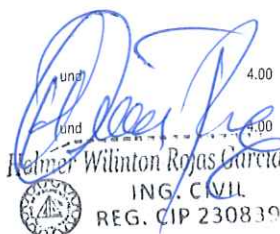 und 4.00
und 4.00
Helmer Wilinton Rojas Garcia
ING. CIVIL
REG. CIP 230839